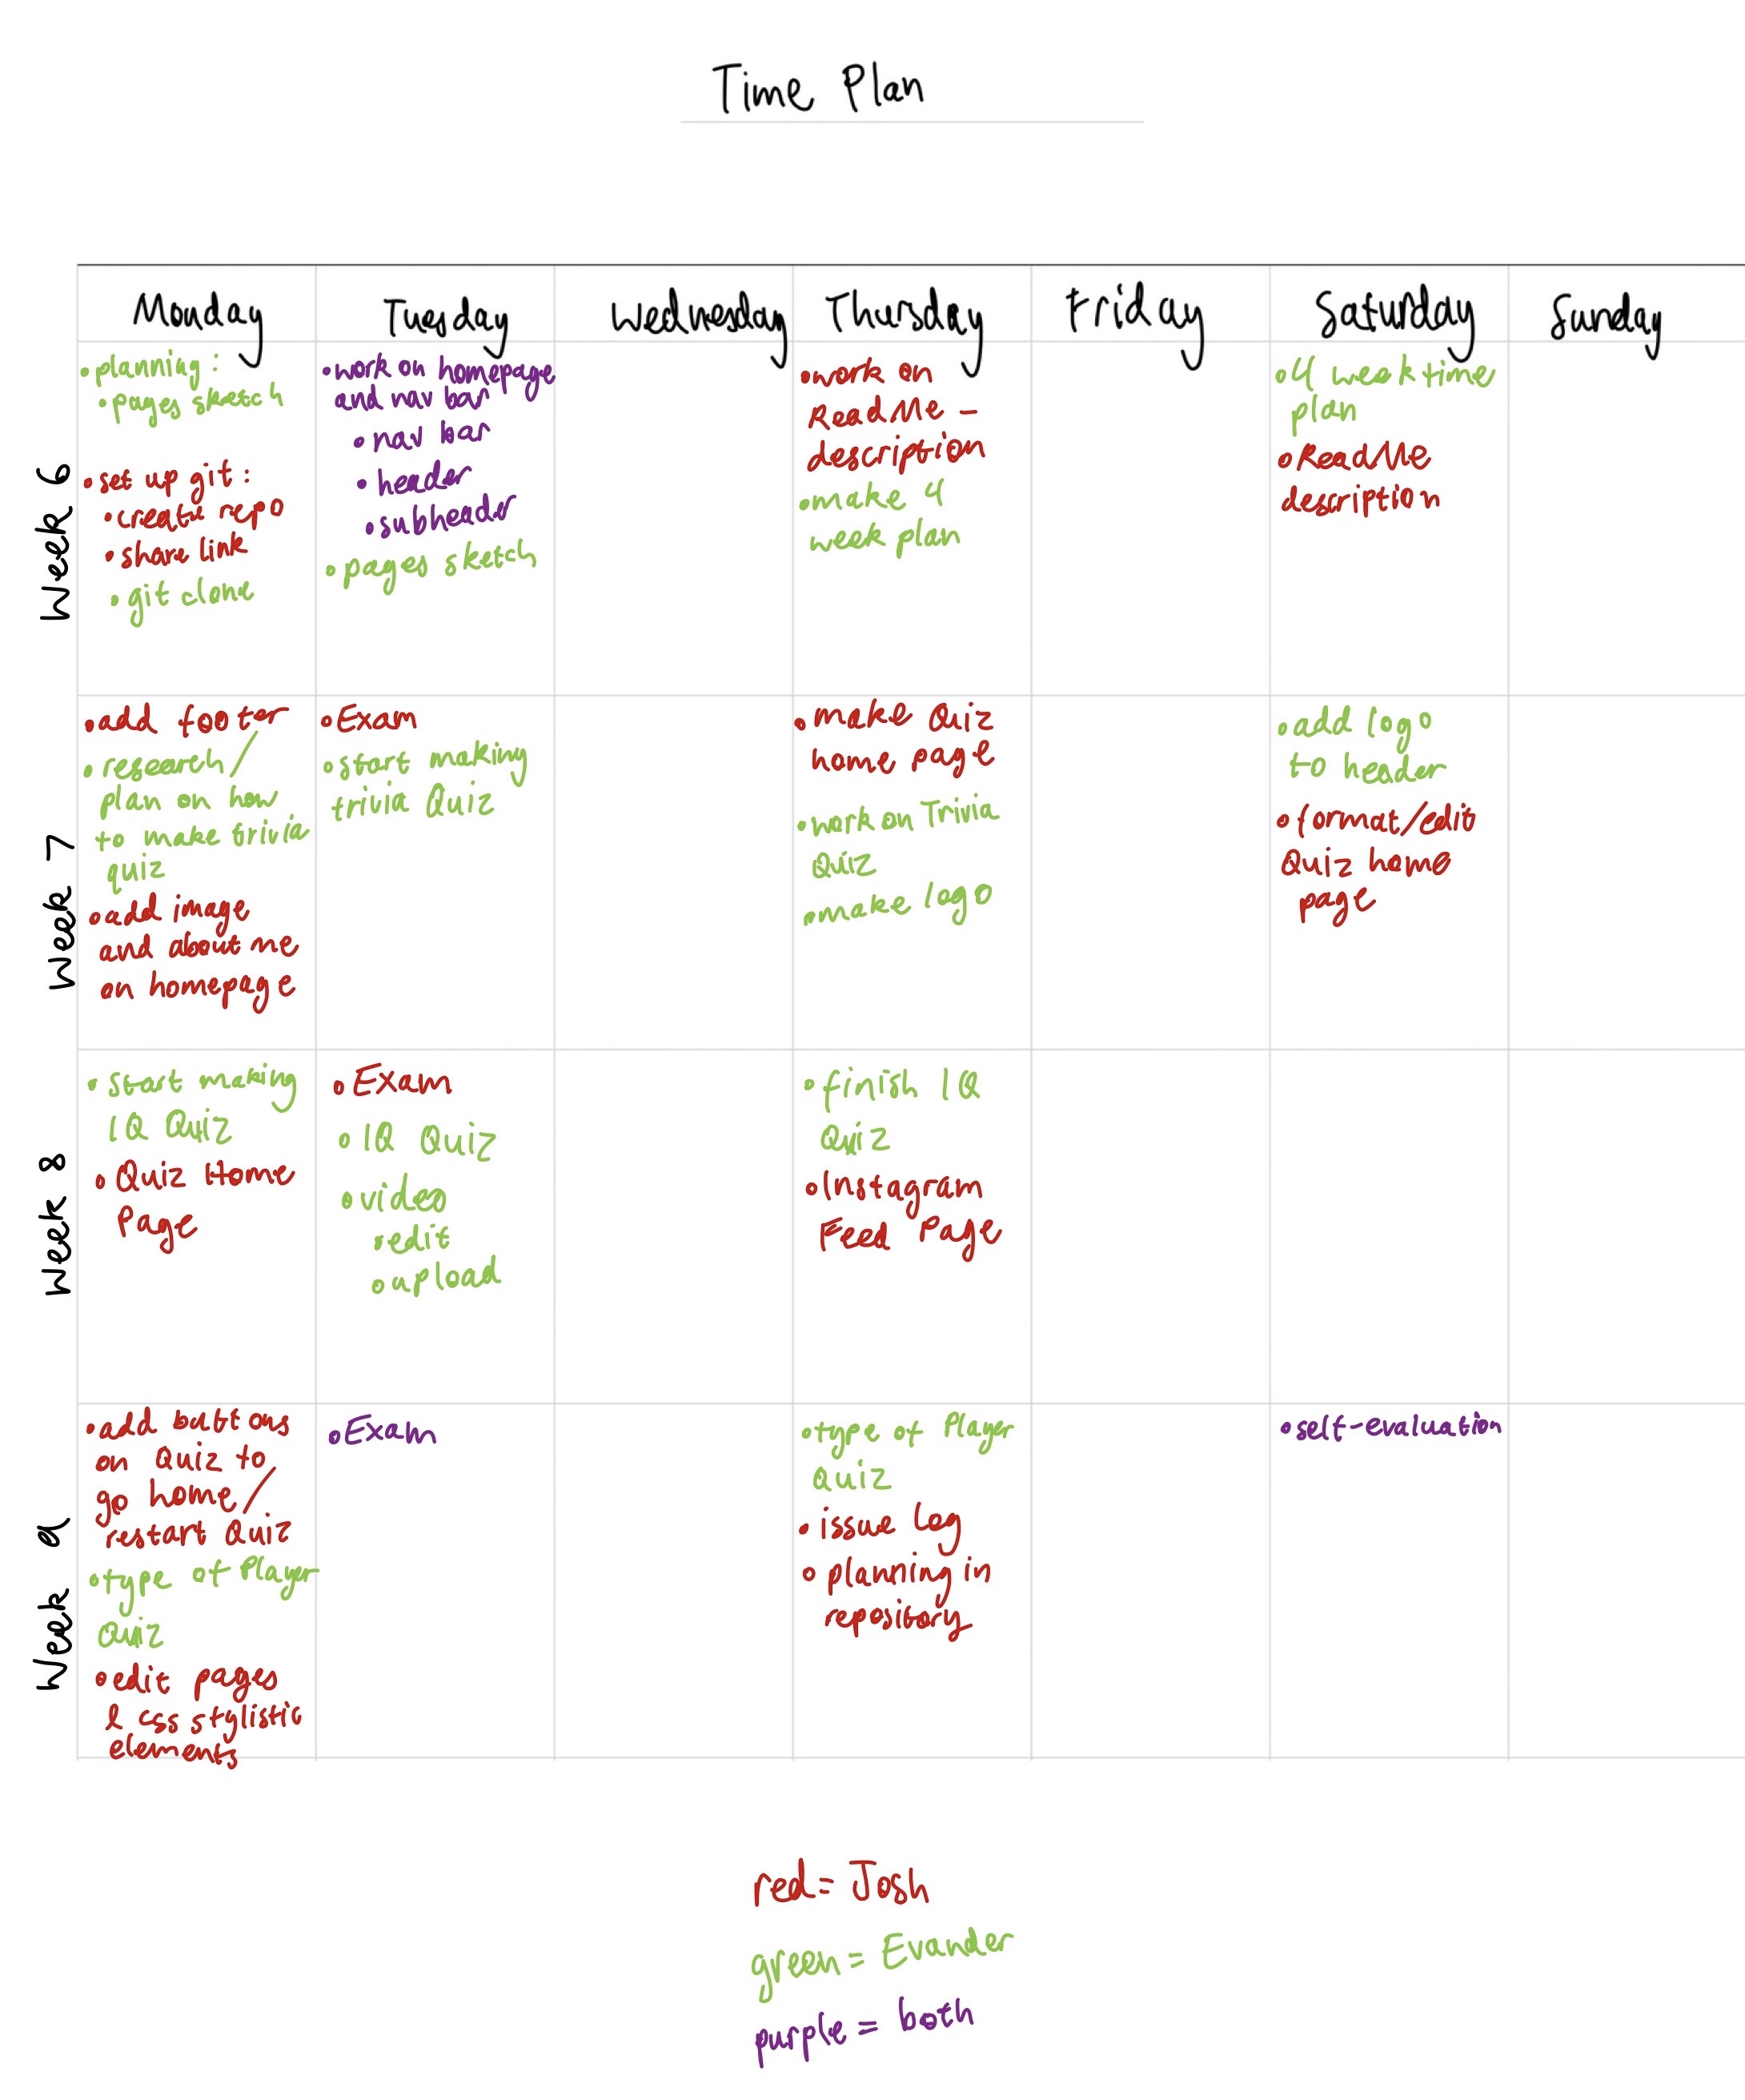 Time Plan
Monday Tuesday Wednesday Thursday Friday Saturday Sunday
Week 6
• planning :
• pages sketch
• set up git :
• create repo
• share link
• git clone
• work on homepage
and nav bar
• nav bar
• header
• subheader
• pages sketch
• work on
ReadMe -
description
• make 4
week plan
• 4 week time
plan
• ReadMe
description
Week 7
• add footer
• research/
plan on how
to make trivia
quiz
• add image
and about me
on homepage
• Exam
• start making
trivia Quiz
• make Quiz
home page
• work on Trivia
Quiz
• make logo
• add logo
to header
• format/edit
Quiz home
page
Week 8
• start making
IQ Quiz
• Quiz Home
Page
• Exam
• IQ Quiz
• video
• edit
• upload
• finish IQ
Quiz
• Instagram
Feed Page
Week 9
• add buttons
on Quiz to
go home/
restart Quiz
• type of Player
Quiz
• edit pages
& css stylistic
elements
• Exam
• type of Player
Quiz
• issue log
• planning in
repository
• self-evaluation
red = Josh
green = Evander
purple = both